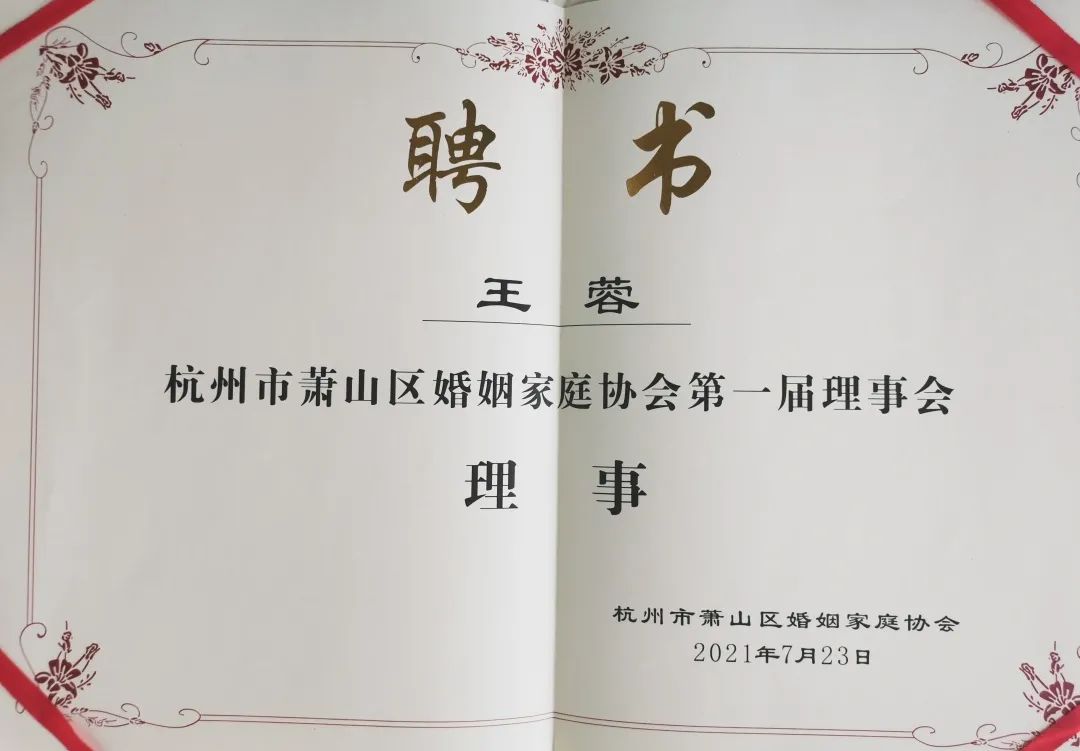 聘书
王蓉
杭州市萧山区婚姻家庭协会第一届理事会
理事
杭州市萧山区婚姻家庭协会
2021年7月23日